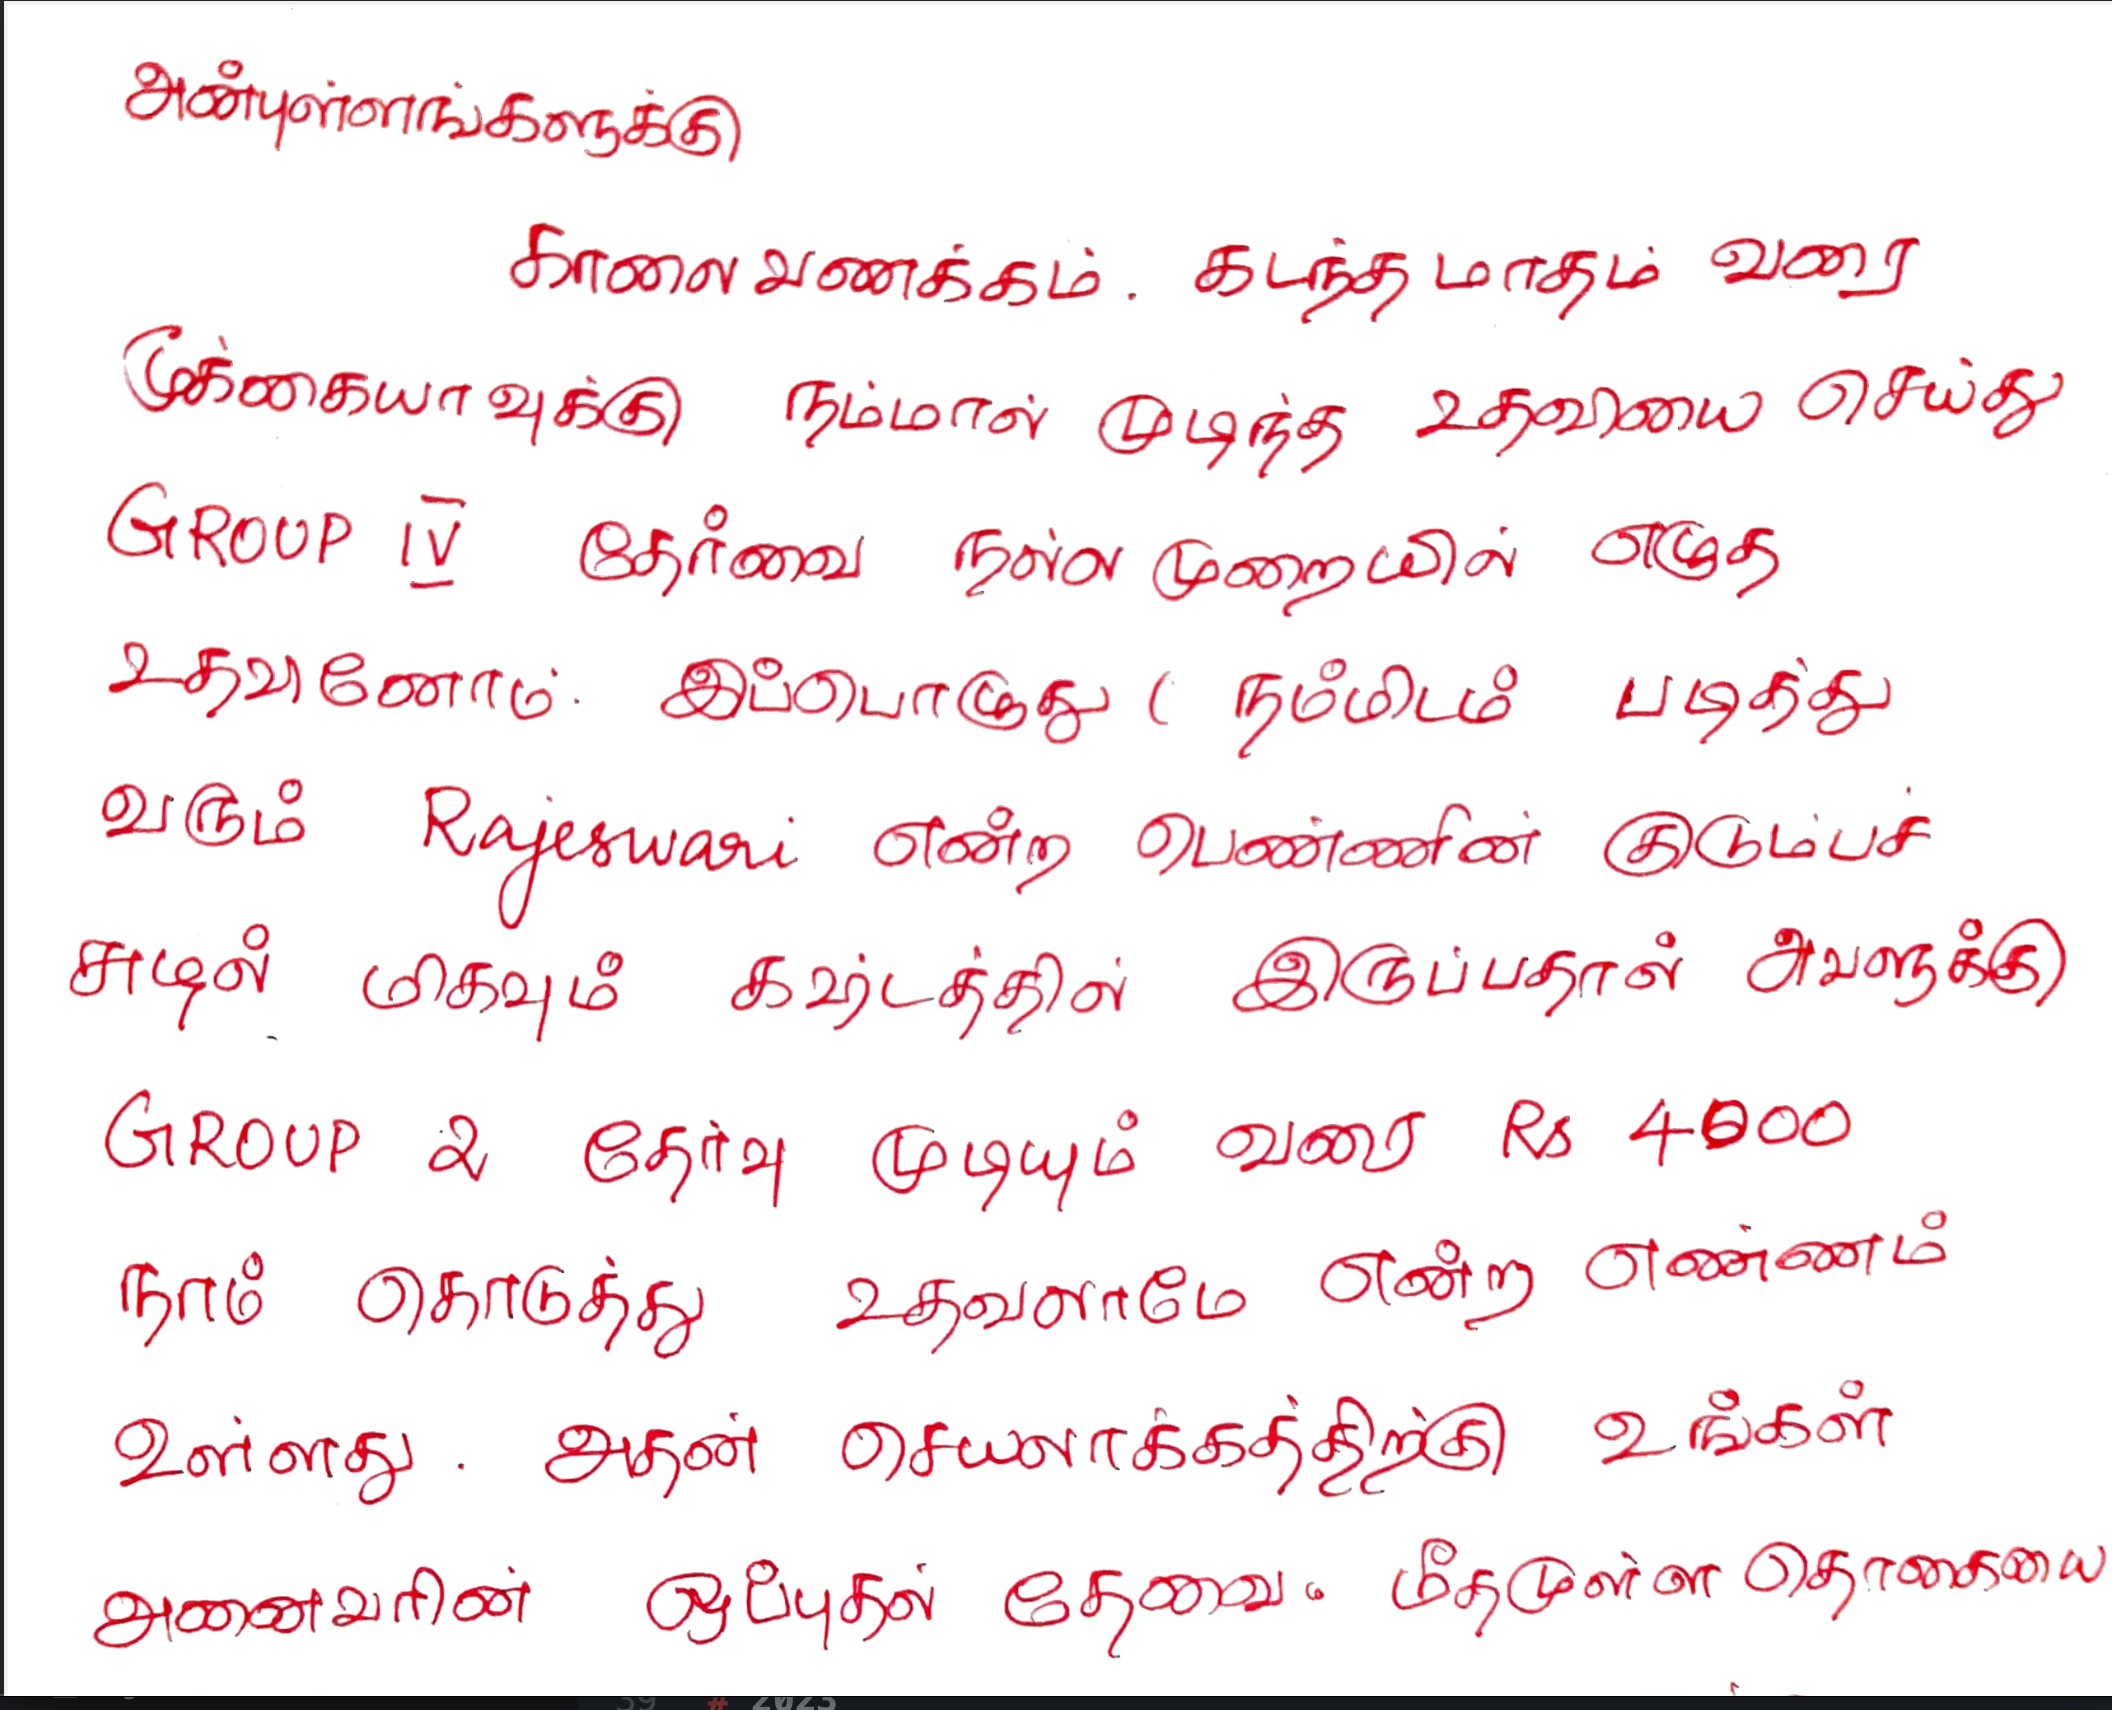 அன்புள்ளங்களுக்கு
காலை வணக்கம். கடந்த மாதம் வரை
முக்கையாவுக்கு நம்மால் முடிந்த உதவியை செய்து
GROUP IV தேர்வை நல்ல முறையில் எழுத
உதவினோம். இப்பொழுது ( நம்மிடம் படித்து
வரும் Rajeswari என்ற பெண்ணின் குடும்பச்
சுழல் மிகவும் கஷ்டத்தில் இருப்பதால் அவளுக்கு
GROUP 2 தேர்வு முடியும் வரை Rs 4000
நாம் கொடுத்து உதவலாமே என்ற எண்ணம்
உள்ளது. அதன் செயலாக்கத்திற்கு உங்கள்
அனைவரின் ஒப்புதல் தேவை. மீதமுள்ள தொகையை
39 # 2023